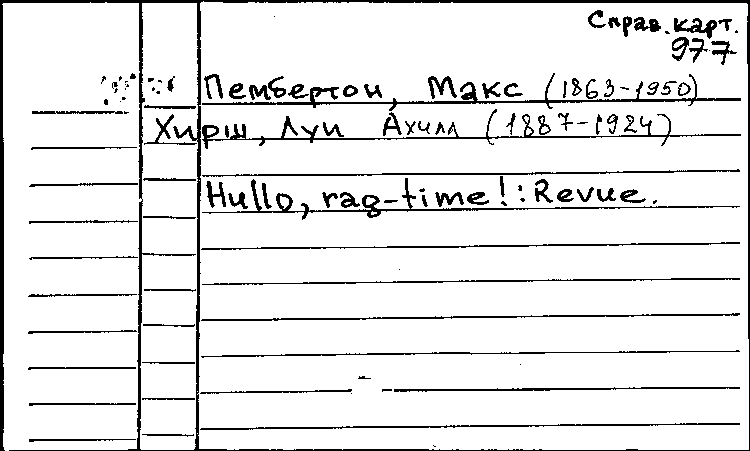 Справ. карт.
977
Пембертон, Макс (1863-1950)
Хирш, Луи Ахилл (1887-1924)
Hullo, rag-time!: Revue.